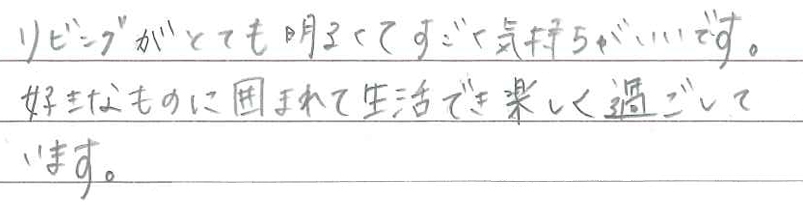 リビングがとても明るくてすごく気持ちがいいです。
好きなものに囲まれて生活でき楽しく過ごして
います。